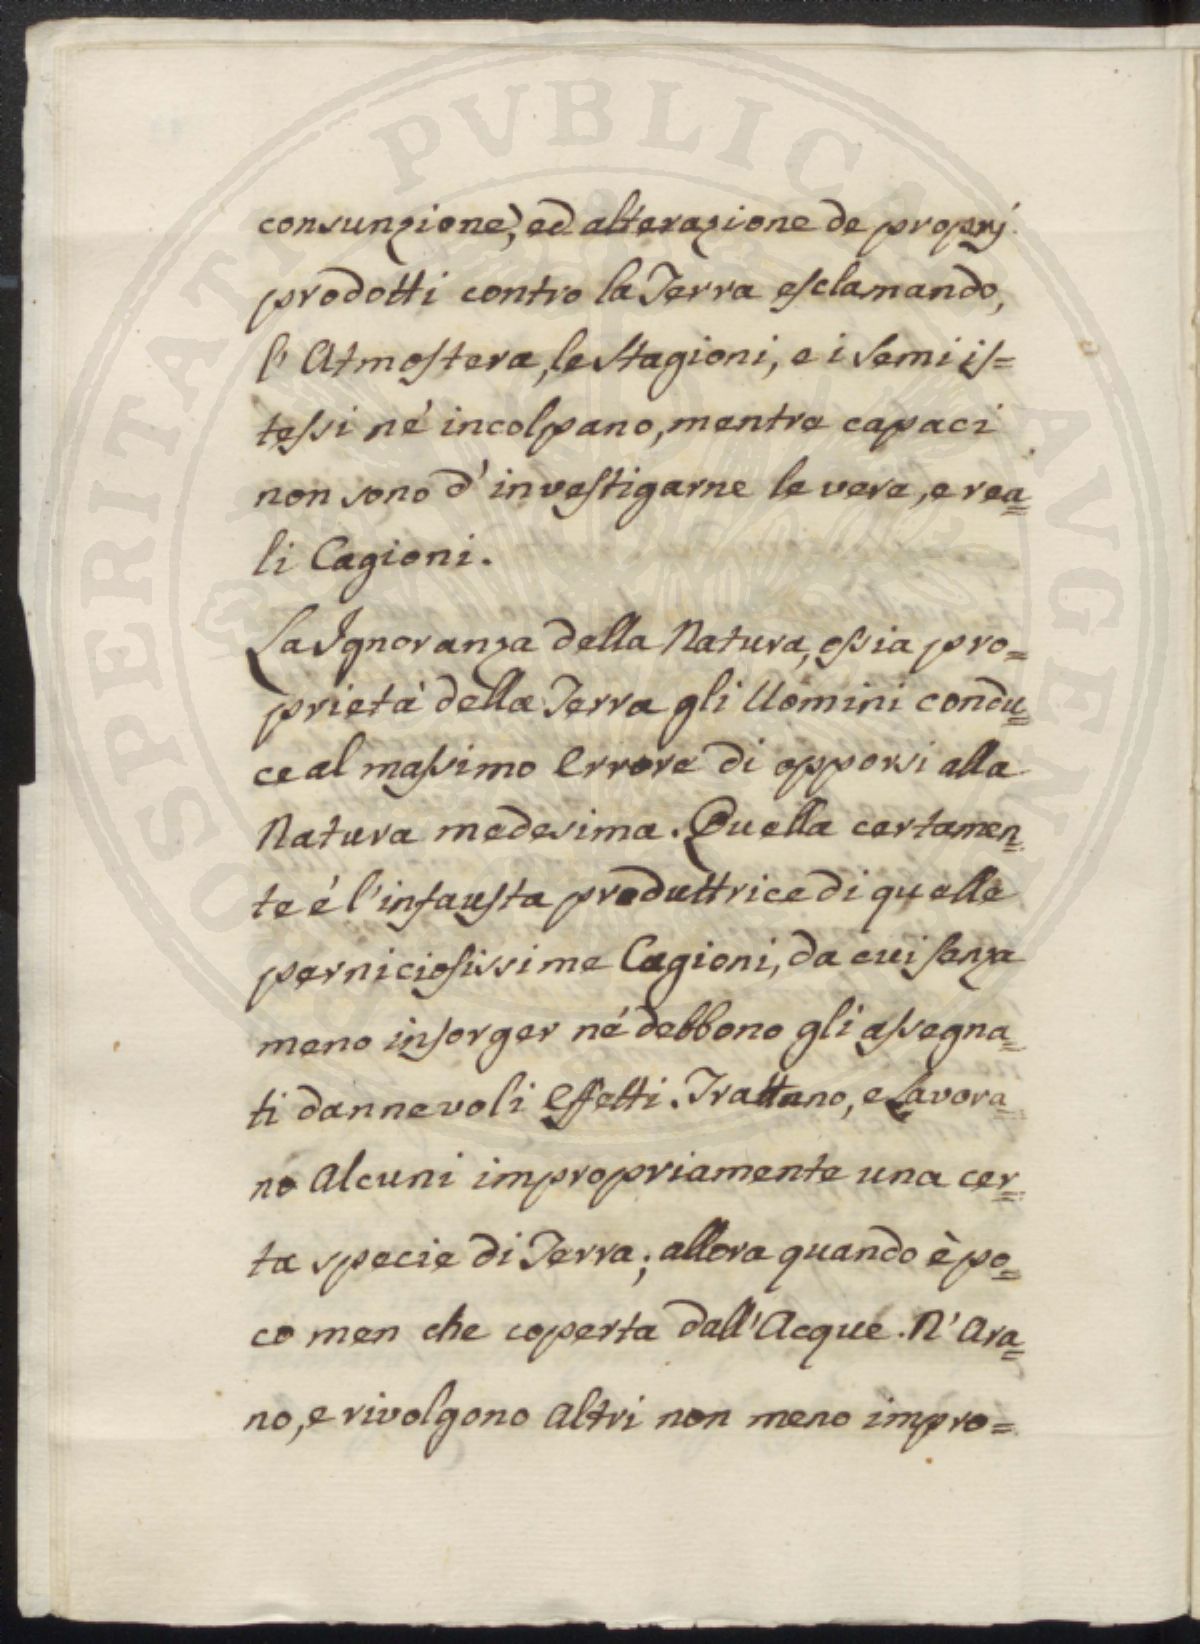 consunzione, ed alterazione de proprj
prodotti contro la Terra esclamando,
l' Atmosfera, le Stagioni, e i Semi is=
tessi né incolpano, mentre capaci
non sono d' investigarne le vere, e rea=
li Cagioni.
La Ignoranza della Natura, ossia pro=
prietà della Terra gli Uomini condu=
ce al massimo Errore di opporsi alla
Natura medesima. Quella certamen=
te é l'infausta produttrice di quelle
perniciosissime Cagioni, da cui senza
meno insorger né debbono gli assegna=
ti dannevoli Effetti. Trattano, e Lavora=
no Alcuni impropriamente una cer=
ta specie di Terra; allora quando è po=
co men che coperta dall'Acque. N' Ara=
no, e rivolgono Altri non meno impro=
PUBLICAE
PROSPERITATI
AVGENDAE